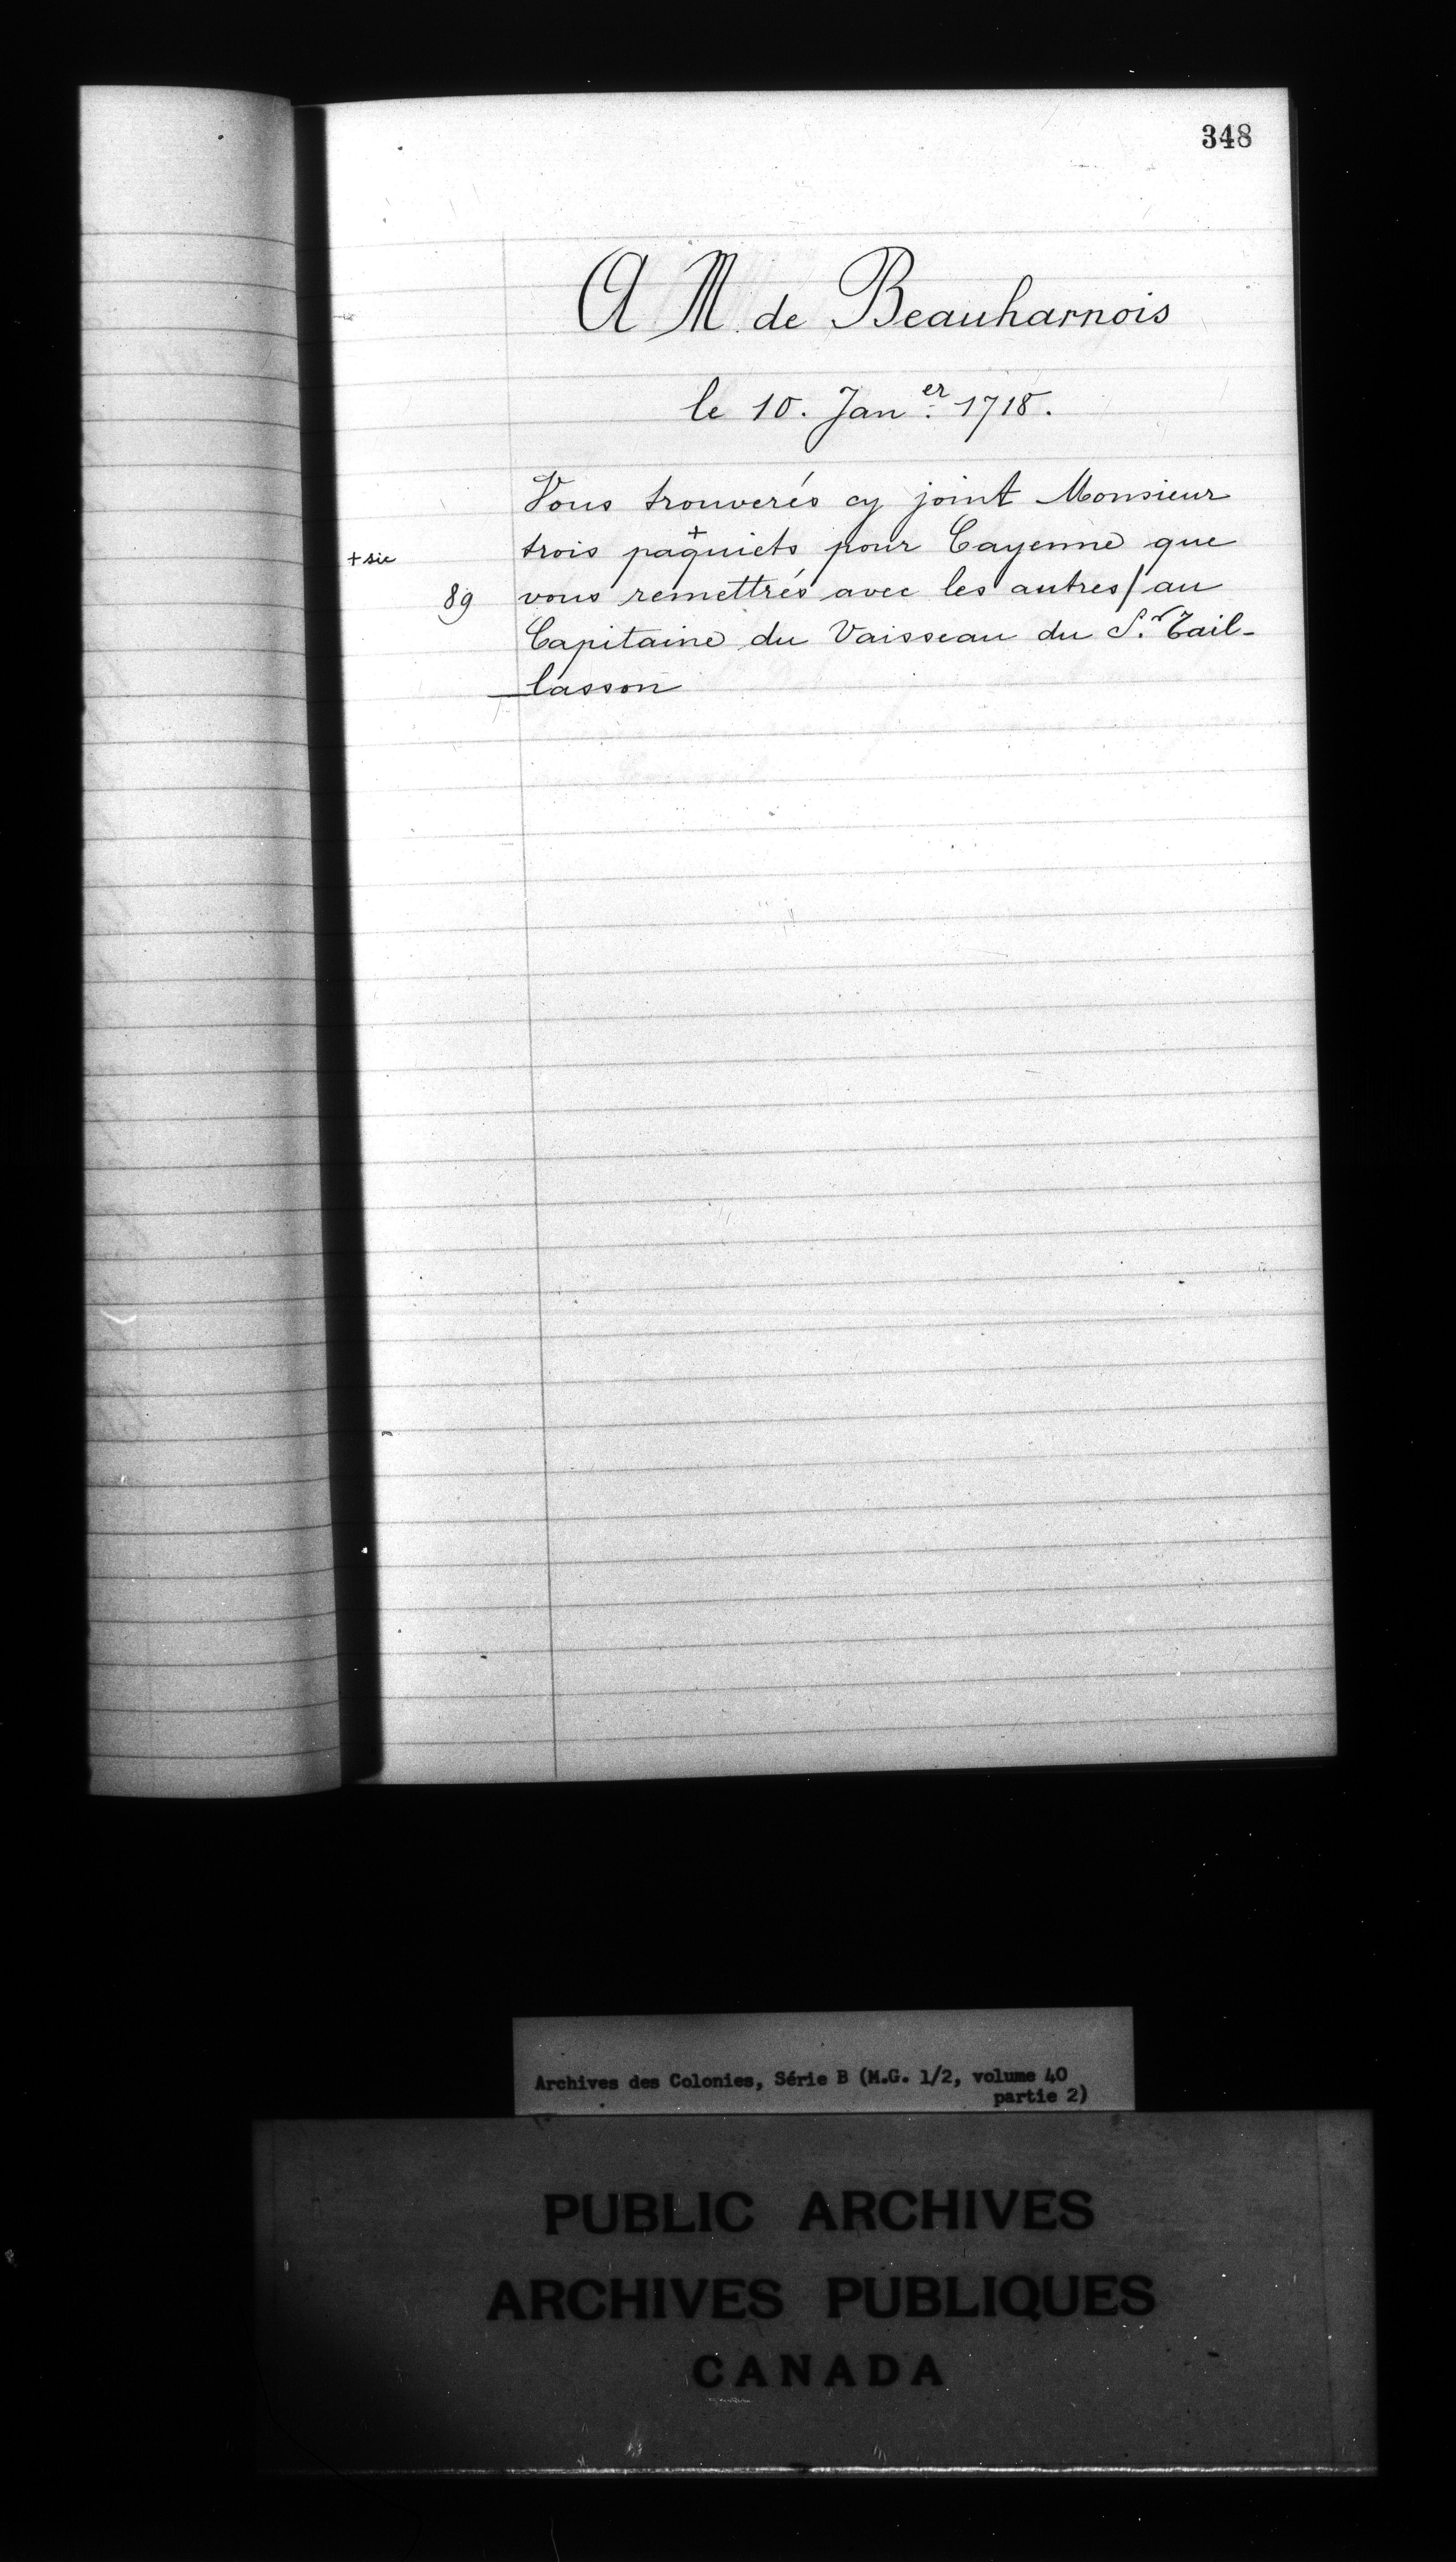 348
A M. de Beauharnois
le 10. Jan.er 1718.
Vous trouverés cy joint Monsieur
trois paq+uiets pour Cayenne que
+ sic
89 vous remettrés avec les autres / au
Capitaine du Vaisseau du S.r Tail-
lasson
Archives des Colonies, Série B (M.G. 1/2, volume 40
partie 2)
PUBLIC ARCHIVES
ARCHIVES PUBLIQUES
CANADA